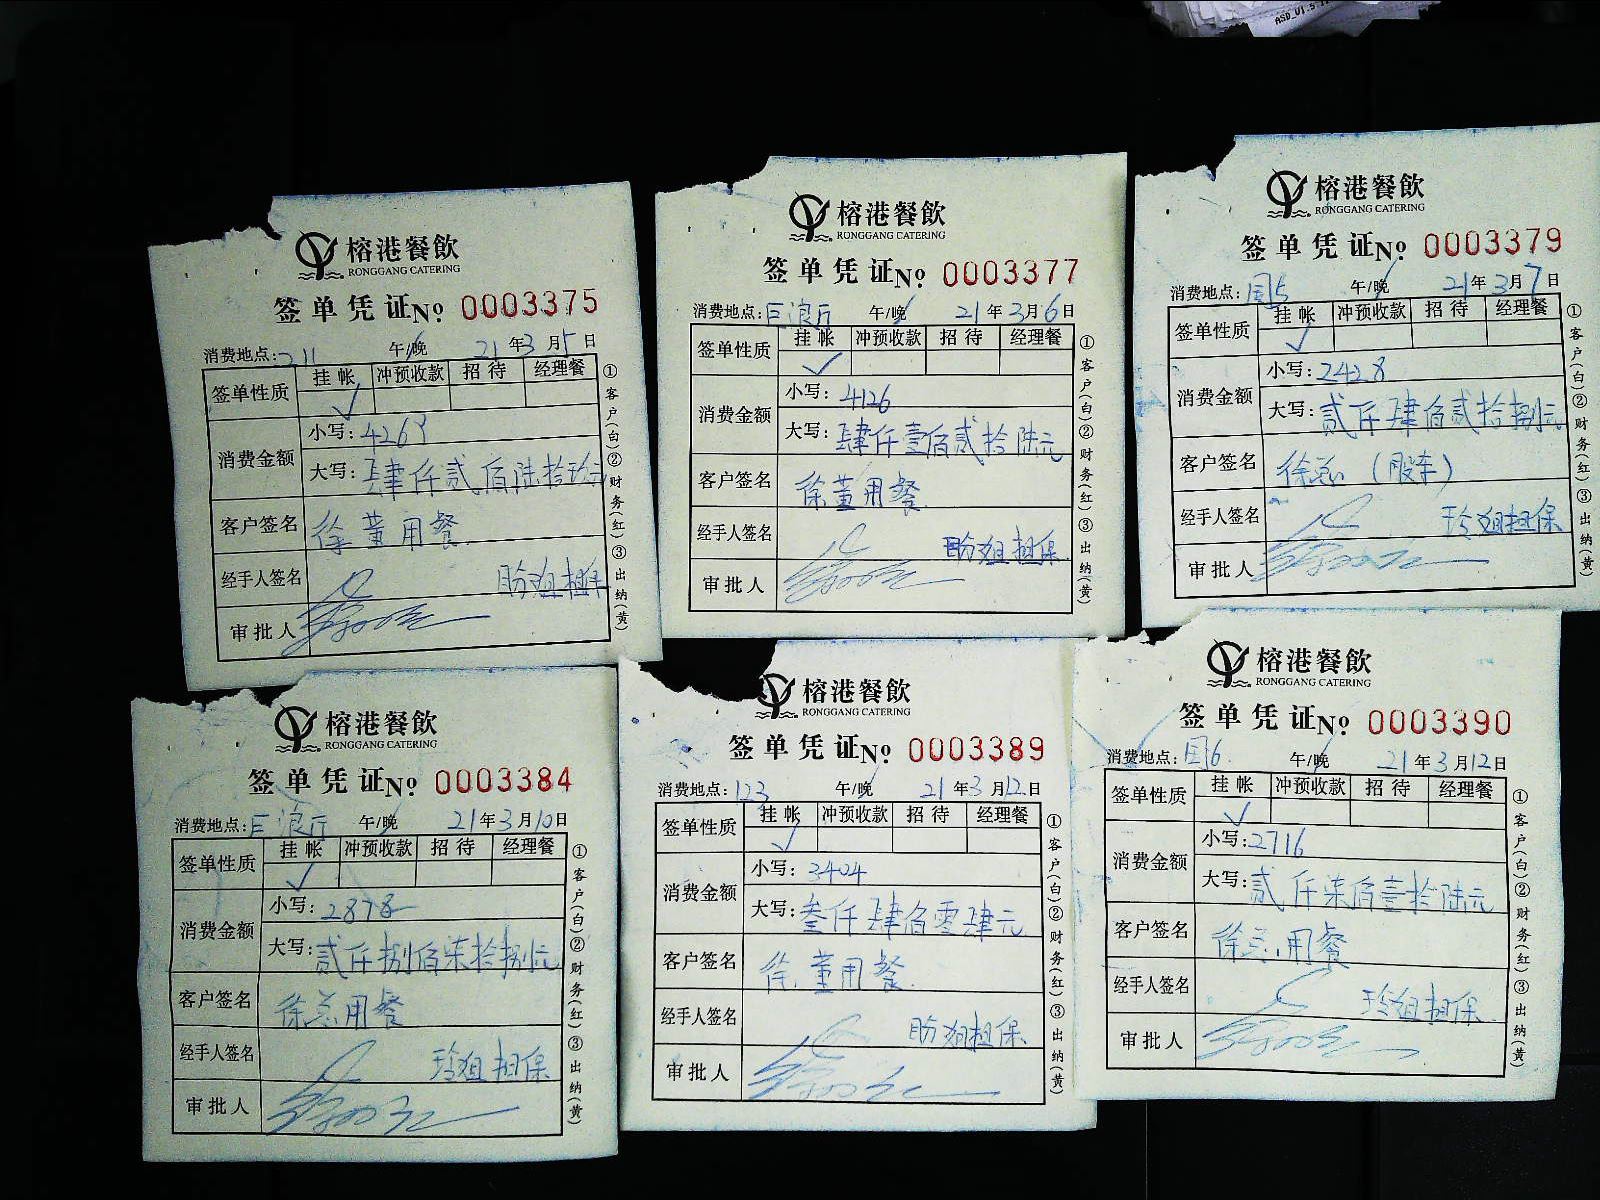 ASD_V1.5
榕港餐飲
RONGGANG CATERING
签单凭证No 0003375
消费地点:211 午/晚 21年3月5日
签单性质 挂帐 冲预收款 招待 经理餐
✓
消费金额 小写:4269
大写:肆仟贰佰陆拾玖元
客户签名 徐董用餐
经手人签名 担保
审批人
①客户(白)②财务(红)③出纳(黄)
榕港餐飲
RONGGANG CATERING
签单凭证No 0003377
消费地点:巨浪厅 午/晚 21年3月6日
签单性质 挂帐 冲预收款 招待 经理餐
✓
消费金额 小写:4126
大写:肆仟壹佰贰拾陆元
客户签名 徐董用餐
经手人签名 担保
审批人
①客户(白)②财务(红)③出纳(黄)
榕港餐飲
RONGGANG CATERING
签单凭证No 0003379
消费地点:国5 午/晚 21年3月7日
签单性质 挂帐 冲预收款 招待 经理餐
✓
消费金额 小写:2428
大写:贰仟肆佰贰拾捌元
客户签名 徐总(股东)
经手人签名 玲姐担保
审批人
①客户(白)②财务(红)③出纳(黄)
榕港餐飲
RONGGANG CATERING
签单凭证No 0003384
消费地点:巨浪厅 午/晚 21年3月10日
签单性质 挂帐 冲预收款 招待 经理餐
✓
消费金额 小写:2878
大写:贰仟捌佰柒拾捌元
客户签名 徐总用餐
经手人签名 玲姐担保
审批人
①客户(白)②财务(红)③出纳(黄)
榕港餐飲
RONGGANG CATERING
签单凭证No 0003389
消费地点:123 午/晚 21年3月12日
签单性质 挂帐 冲预收款 招待 经理餐
✓
消费金额 小写:3404
大写:叁仟肆佰零肆元
客户签名 徐董用餐
经手人签名 担保
审批人
①客户(白)②财务(红)③出纳(黄)
榕港餐飲
RONGGANG CATERING
签单凭证No 0003390
消费地点:国6 午/晚 21年3月12日
签单性质 挂帐 冲预收款 招待 经理餐
✓
消费金额 小写:2716
大写:贰仟柒佰壹拾陆元
客户签名 徐总用餐
经手人签名 玲姐担保
审批人
①客户(白)②财务(红)③出纳(黄)